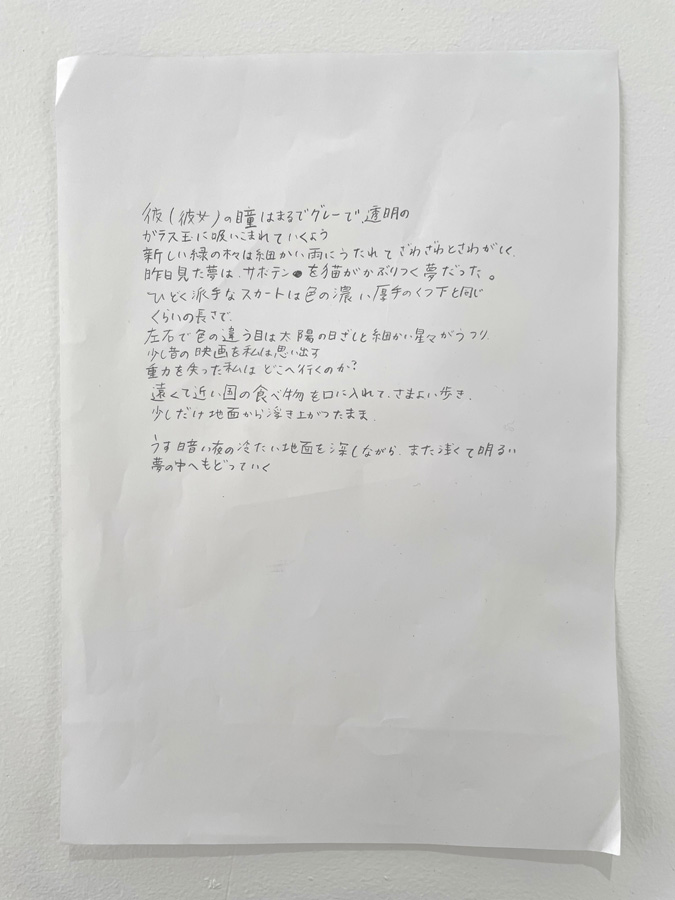 彼(彼女)の瞳はまるでグレーで、透明の
ガラス玉に吸いこまれていくよう
新しい緑の木々は細かい雨にうたれてざわざわとさわがしく、
昨日見た夢は、サボテンを猫がかぶりつく夢だった。
ひどく派手なスカートは色の濃い厚手のくつ下と同じ
くらいの長さで、
左右で色の違う目は太陽の日ざしと細かい星々がうつり、
少し昔の映画を私は思い出す
重力を失った私はどこへ行くのか?
遠くて近い国の食べ物を口に入れて、さまよい歩き、
少しだけ地面から浮き上がったまま、
うす暗い夜の冷たい地面を深しながら、また浅くて明るい
夢の中へもどっていく